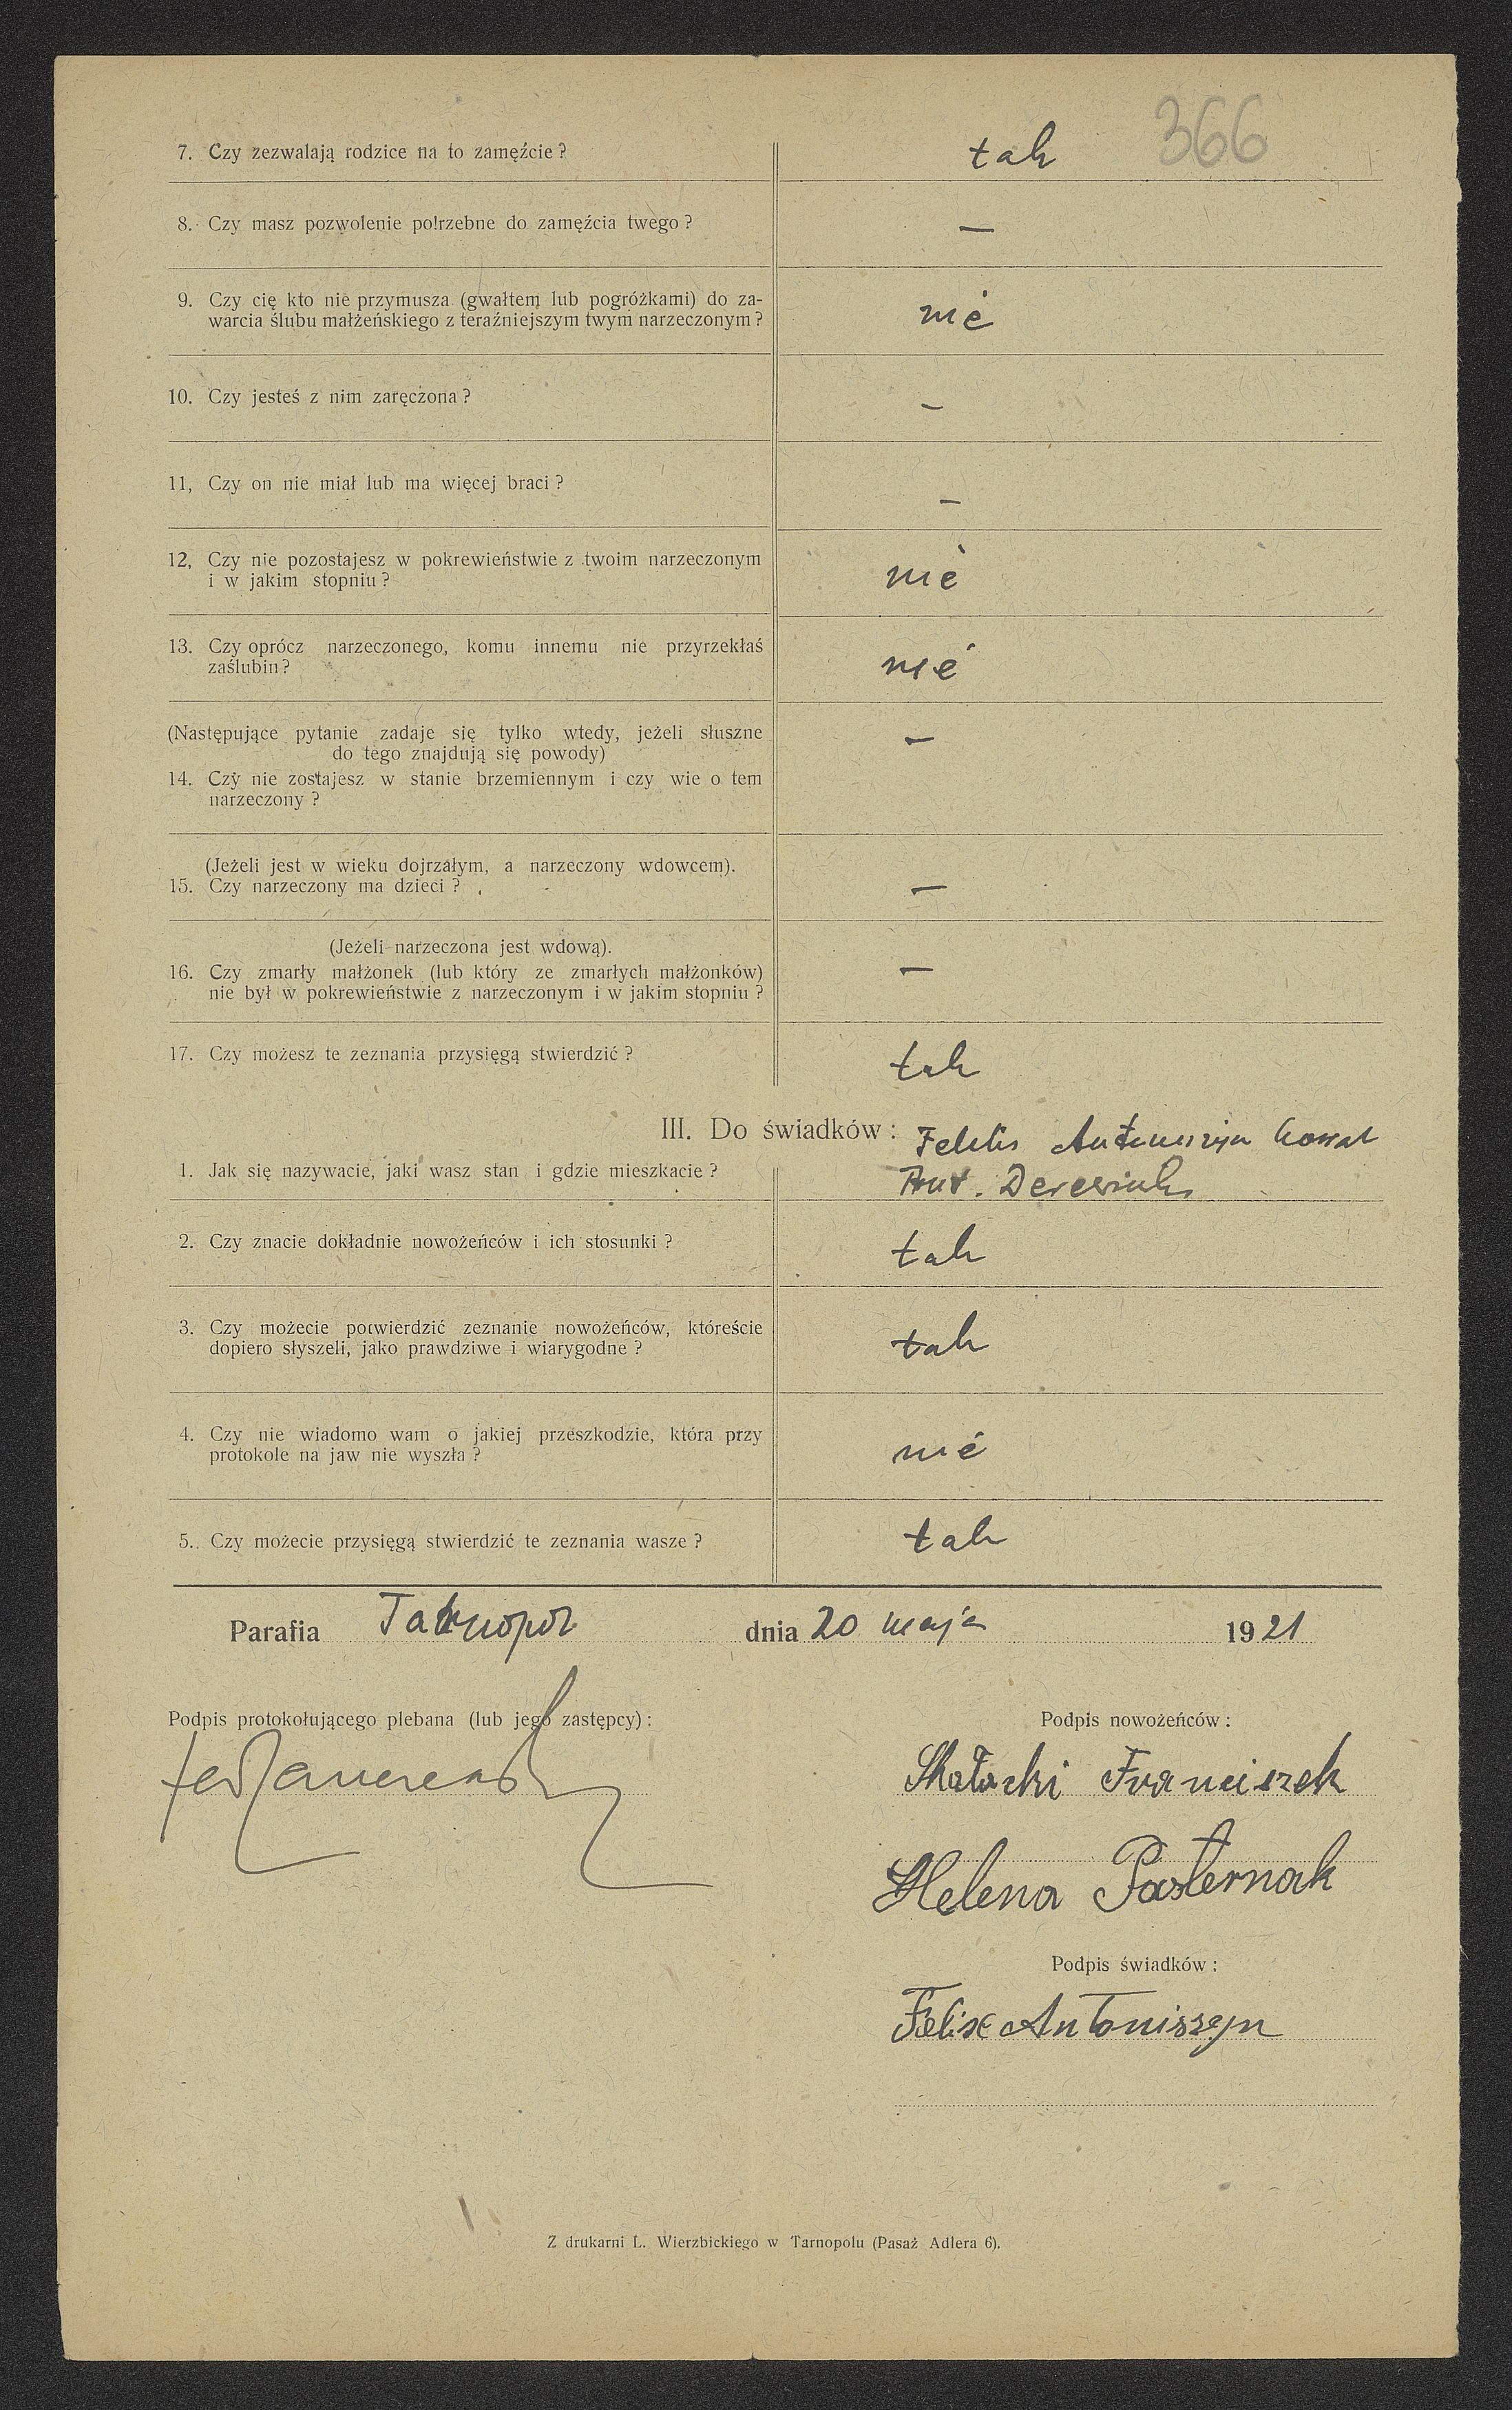 366
7. Czy zezwalają rodzice na to zamęźcie? tak
8. Czy masz pozwolenie potrzebne do zamęźcia twego? —
9. Czy cię kto nie przymusza (gwałtem lub pogróżkami) do za-
warcia ślubu małżeńskiego z teraźniejszym twym narzeczonym? nie
10. Czy jesteś z nim zaręczona? —
11, Czy on nie miał lub ma więcej braci? —
12, Czy nie pozostajesz w pokrewieństwie z twoim narzeczonym
i w jakim stopniu? nie
13. Czy oprócz narzeczonego, komu innemu nie przyrzekłaś
zaślubin? nie
(Następujące pytanie zadaje się tylko wtedy, jeżeli słuszne
do tego znajdują się powody) —
14. Czy nie zostajesz w stanie brzemiennym i czy wie o tem
narzeczony?
(Jeżeli jest w wieku dojrzałym, a narzeczony wdowcem).
15. Czy narzeczony ma dzieci? —
(Jeżeli narzeczona jest wdową).
16. Czy zmarły małżonek (lub który ze zmarłych małżonków) —
nie był w pokrewieństwie z narzeczonym i w jakim stopniu?
17. Czy możesz te zeznania przysięgą stwierdzić? tak
III. Do świadków: Antoniszyn
1. Jak się nazywacie, jaki wasz stan i gdzie mieszkacie? Ant.
2. Czy znacie dokładnie nowożeńców i ich stosunki? tak
3. Czy możecie potwierdzić zeznanie nowożeńców, któreście
dopiero słyszeli, jako prawdziwe i wiarygodne? tak
4. Czy nie wiadomo wam o jakiej przeszkodzie, która przy
protokole na jaw nie wyszła? nie
5. Czy możecie przysięgą stwierdzić te zeznania wasze? tak
Parafia Tarnopol dnia 20 maja 1921
Podpis protokołującego plebana (lub jego zastępcy):
Podpis nowożeńców:
Franciszek
Helena Pasternak
Podpis świadków:
Felix Antoniszyn
Z drukarni L. Wierzbickiego w Tarnopolu (Pasaż Adlera 6).